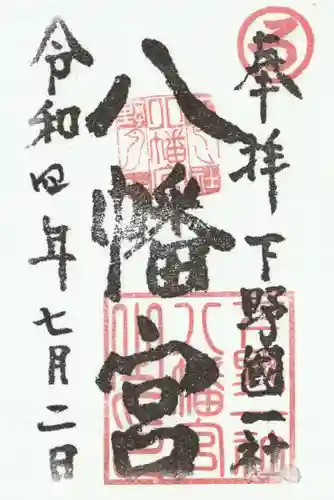 奉拝
下野國一社
八幡宮
令和四年七月二日